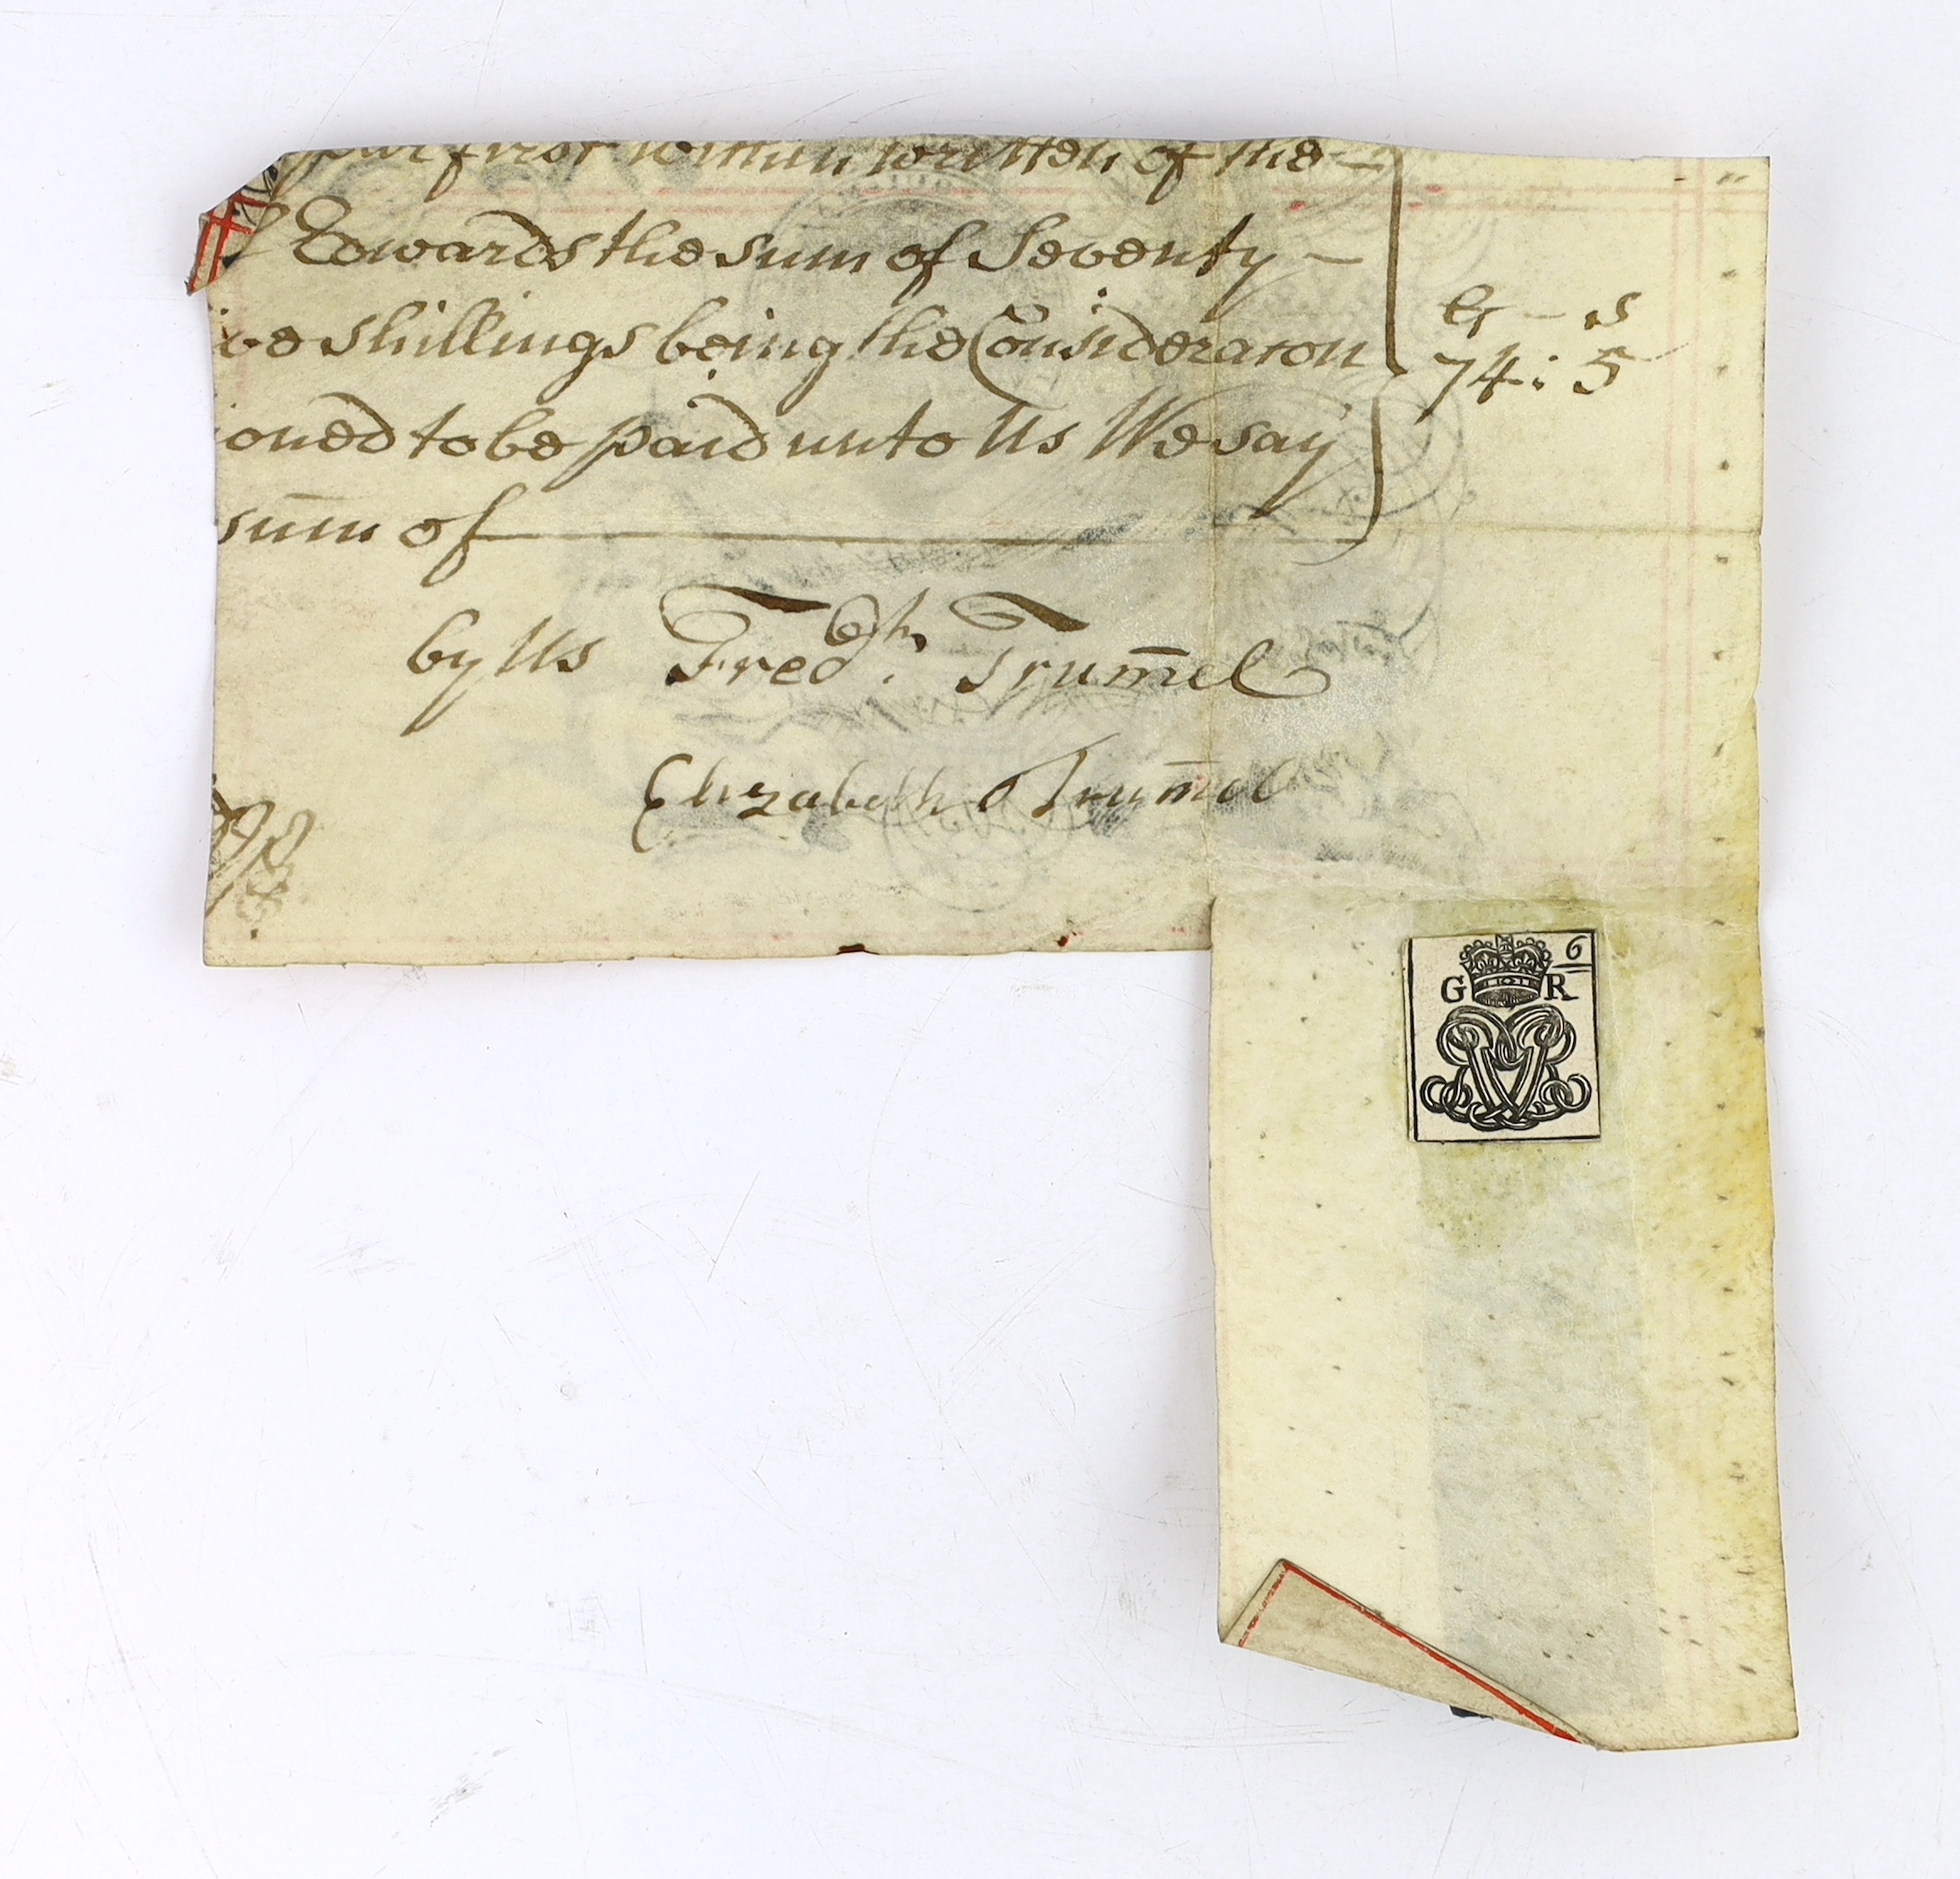 year first within written of the
Edwards the sum of Seventy
ve shillings being the Consideracon
£ s
74 : 5
oned to be paid unto Us We say
sum̄ of
by Us Fredk. Trum̄el
Elizabeth Trum̄el
6
G R